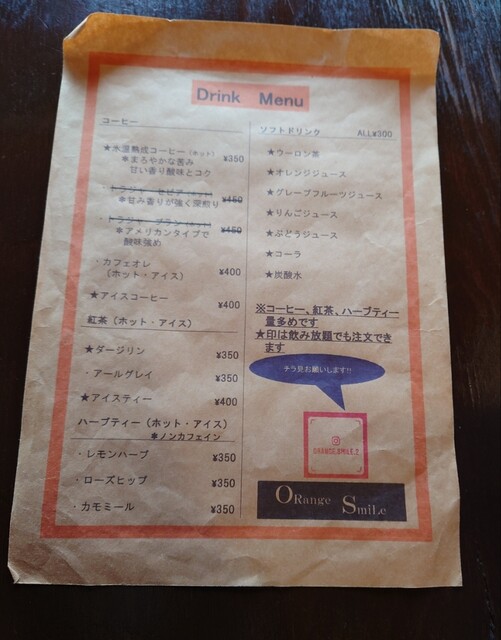 Drink Menu
コーヒー
★氷温熟成コーヒー(ホット) ¥350
＊まろやかな苦み
甘い香り酸味とコク
・トラジャ セピア(ホット) ¥450
＊甘み香りが強く深煎り
・トラジャ ブラン(ホット) ¥450
＊アメリカンタイプで
酸味強め
・カフェオレ
(ホット・アイス) ¥400
★アイスコーヒー ¥400
紅茶(ホット・アイス)
★ダージリン ¥350
・アールグレイ ¥350
★アイスティー ¥400
ハーブティー(ホット・アイス)
＊ノンカフェイン
・レモンハーブ ¥350
・ローズヒップ ¥350
・カモミール ¥350
ソフトドリンク ALL¥300
★ウーロン茶
★オレンジジュース
★グレープフルーツジュース
★りんごジュース
★ぶどうジュース
★コーラ
★炭酸水
※コーヒー、紅茶、ハーブティー
量多めです
★印は飲み放題でも注文でき
ます
チラ見お願いします!!
ORANGE.SMILE.2
ORange SmiLe